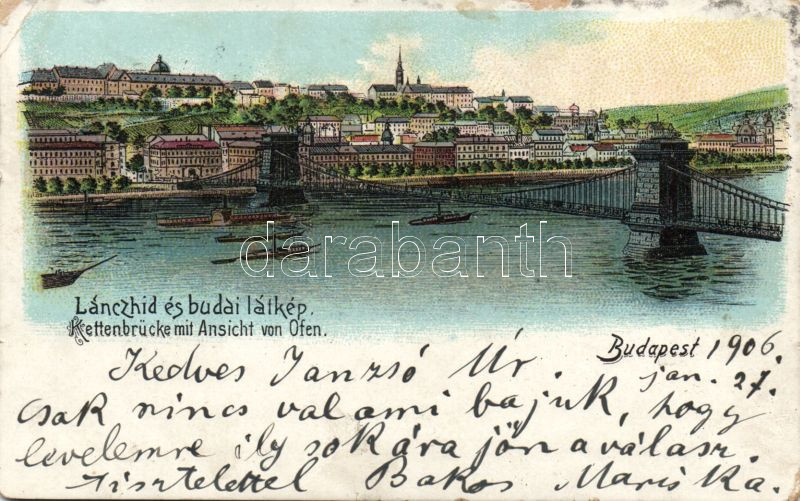 darabanth
Lánczhid és budai látkép.
Kettenbrücke mit Ansicht von Ofen.
Budapest 1906.
jan. 27.
Kedves Janzsó Úr.
Csak nincs valami bajuk, hogy
levelemre ily sokára jön a válasz.
Tisztelettel Bakos Mariska.